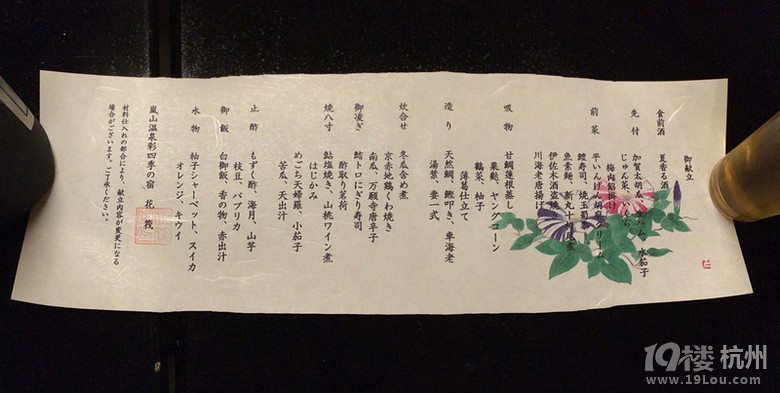 御献立
食前酒
夏香る酒
先付
加賀太胡瓜
水茄子
じゅん菜、いくら
梅肉餡掛け
前菜
平いんげん胡麻クリーム
鱧寿司、焼玉蜀黍
魚素麺、新丸十
伊佐木酒盗焼
川海老唐揚げ
吸物
甘鯛蓮根蒸し
粟麩、ヤングコーン
鶴菜、柚子
薄葛仕立て
造り
天然鯛、鰹叩き、車海老
湯葉、妻一式
炊合せ
冬瓜含め煮
京赤地鶏くわ焼き
南瓜、万願寺唐辛子
御凌ぎ
鱧トロにぎり寿司
酢取り茗荷
焼八寸
鮎塩焼き、山桃ワイン煮
はじかみ
めごち天婦羅、小茄子
苦瓜、天出汁
止酢
もずく酢、海月、山芋
枝豆、パプリカ
御飯
白御飯、香の物、赤出汁
水物
柚子シャーベット、スイカ
オレンジ、キウイ
嵐山温泉彩四季の宿 花筏
材料仕入れの都合により、献立内容が変更になる
場合がございます。ご了承ください。
19楼 杭州
www.19Lou.com